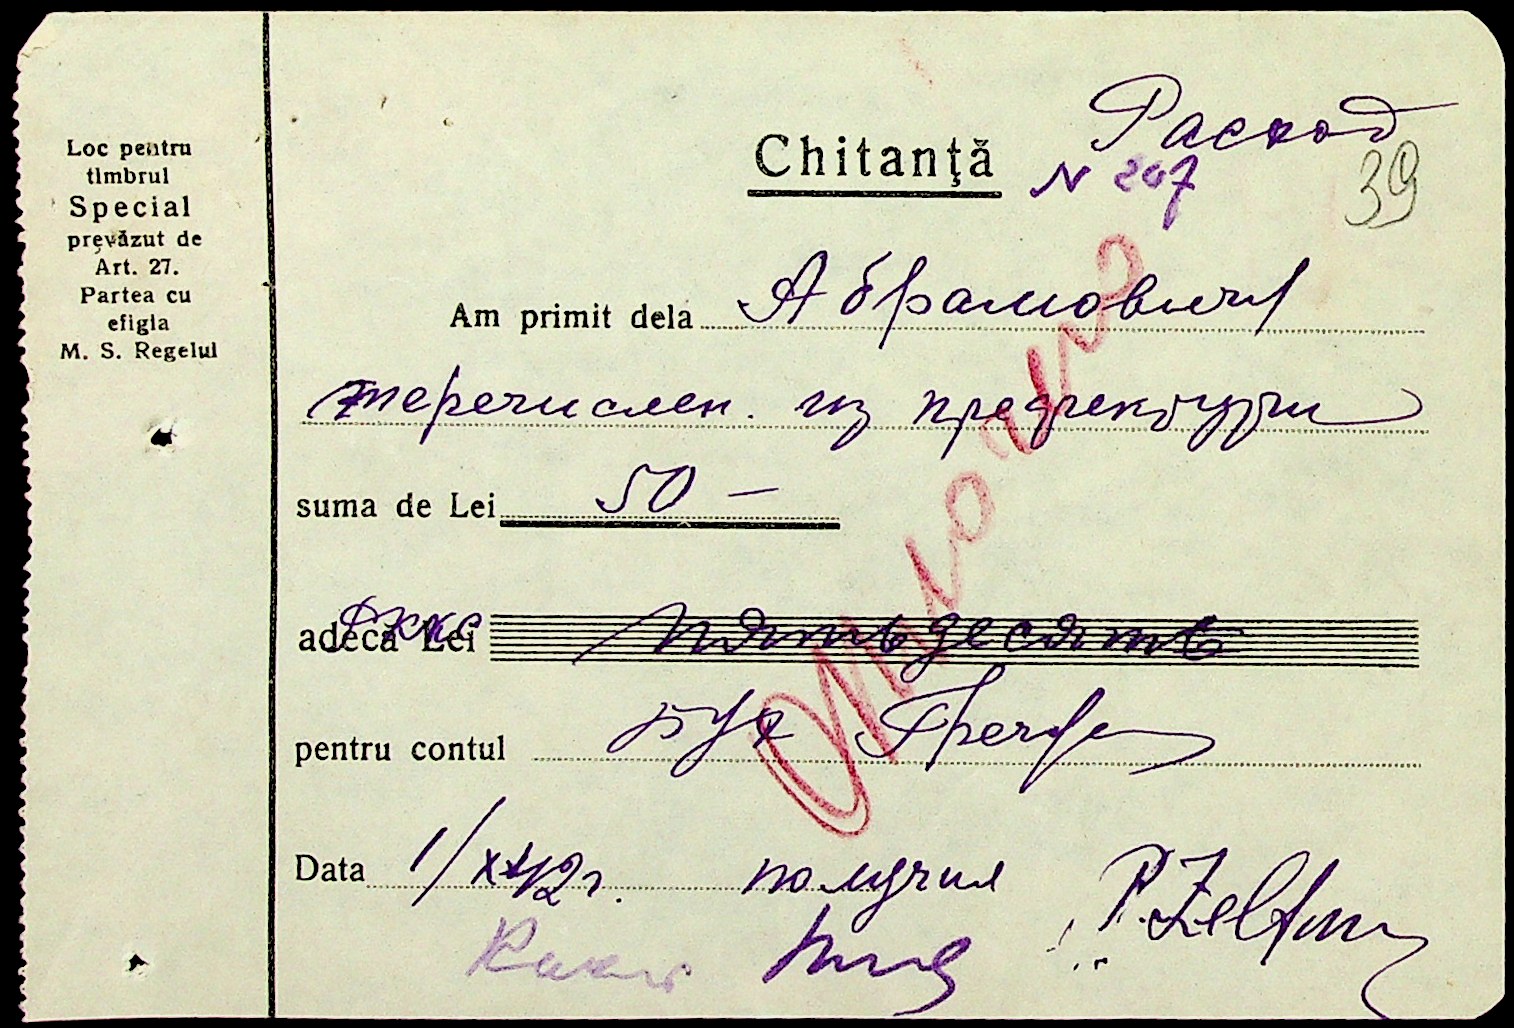 Loc pentru
timbrul
Special
prevăzut de
Art. 27.
Partea cu
efigia
M. S. Regelui
Расход
Chitanţă
N 207
39
Am primit dela Абрамович
перечислен. из префектуры
suma de Lei 50 —
adecă Lei пятьдесят
pentru contul бух
Data 1/X 42 г. получил
P. Zeltman
Оплачено